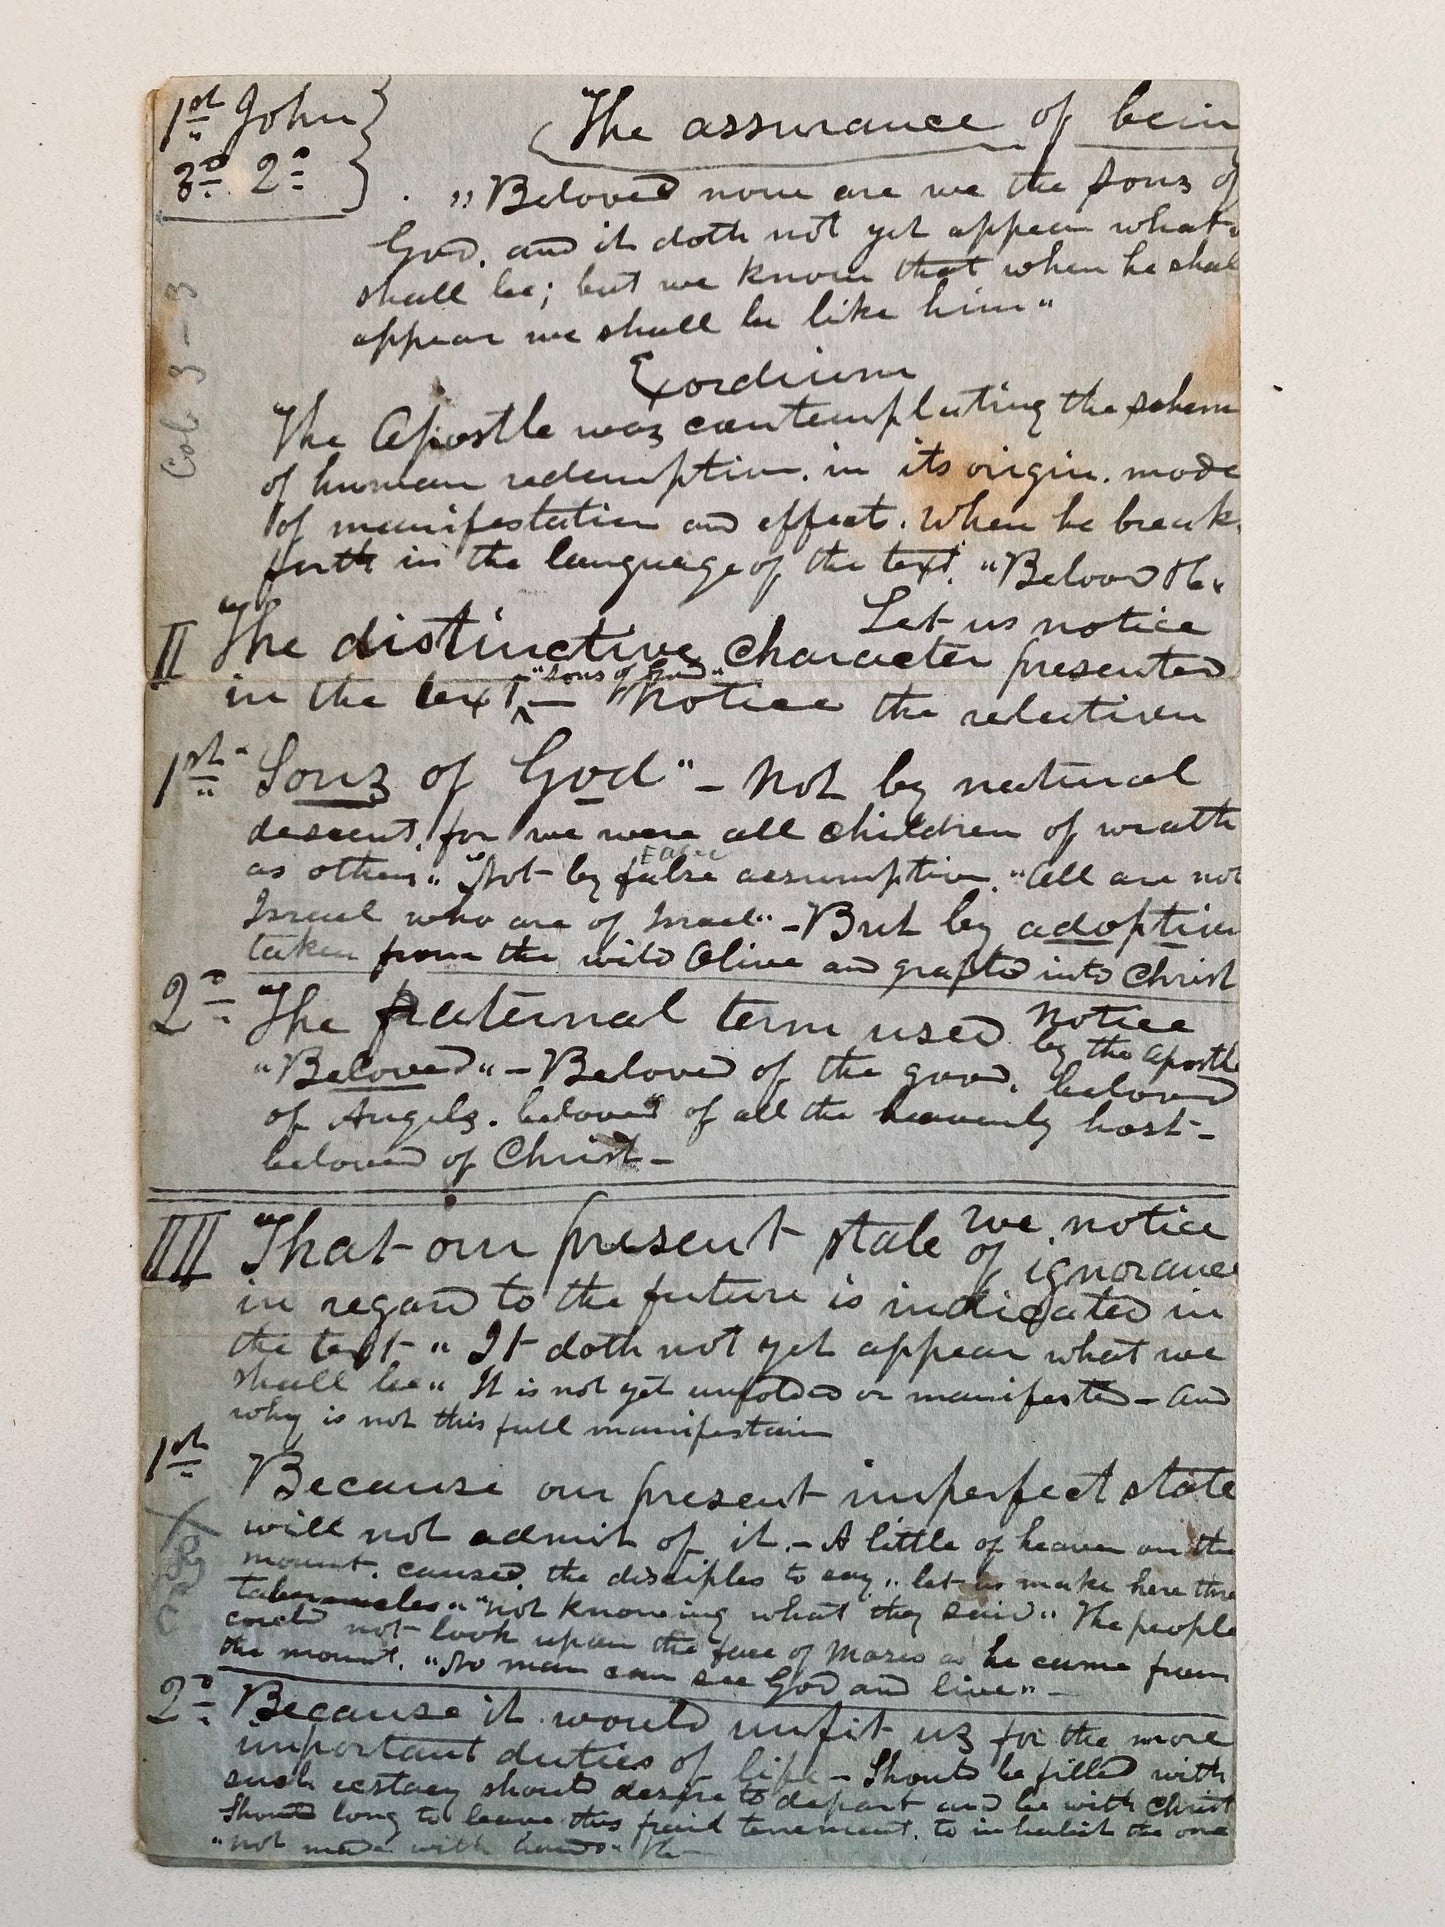 1st John
3d. 2d
The assurance of bein
„Beloved now are we the sons of
God. and it doth not yet appear what
shall be; but we know that when he shal
appear we shall be like him"
Exordium
The Apostle was contemplating the schem
of human redemption. in its origin. mode
of manifestation and effect. When he break
forth in the language of the text. "Beloved &c"
Let us notice
II The distinctive character presented
"sons of God"
in the text ^ — Notice the relation
1st Sons of God" – Not by natural
descent, for we were all children of wrath
as others" Not by false assumption. "All are not
Israel who are of Israel" – But by adoption
taken from the wild Olive and grafted into Christ
notice
2d The fraternal term used by the Apostle
"Beloved" – Beloved of the good. beloved
of Angels. beloved of all the heavenly host –
beloved of Christ –
we notice
III That our present state of ignorance
in regard to the future is indicated in
the text – "It doth not yet appear what we
shall be" It is not yet unfolded or manifested – and
why is not this full manifestain
1st
Because our present imperfect state
will not admit of it. – A little of heaven on the
mount. caused. the disciples to say „ let us make here thre
tabernacles" "not knowing what they said" The people
could not look upon the face of Moses as he came from
the mount. "No man can see God and live" –
2d Because it would unfit us for the more
important duties of life – Should be filled with
such ecstacy should desire to depart and be with Christ
Should long to leave this frail tenement. to inhabit the one
"not made with hands" &c
Col 3-3